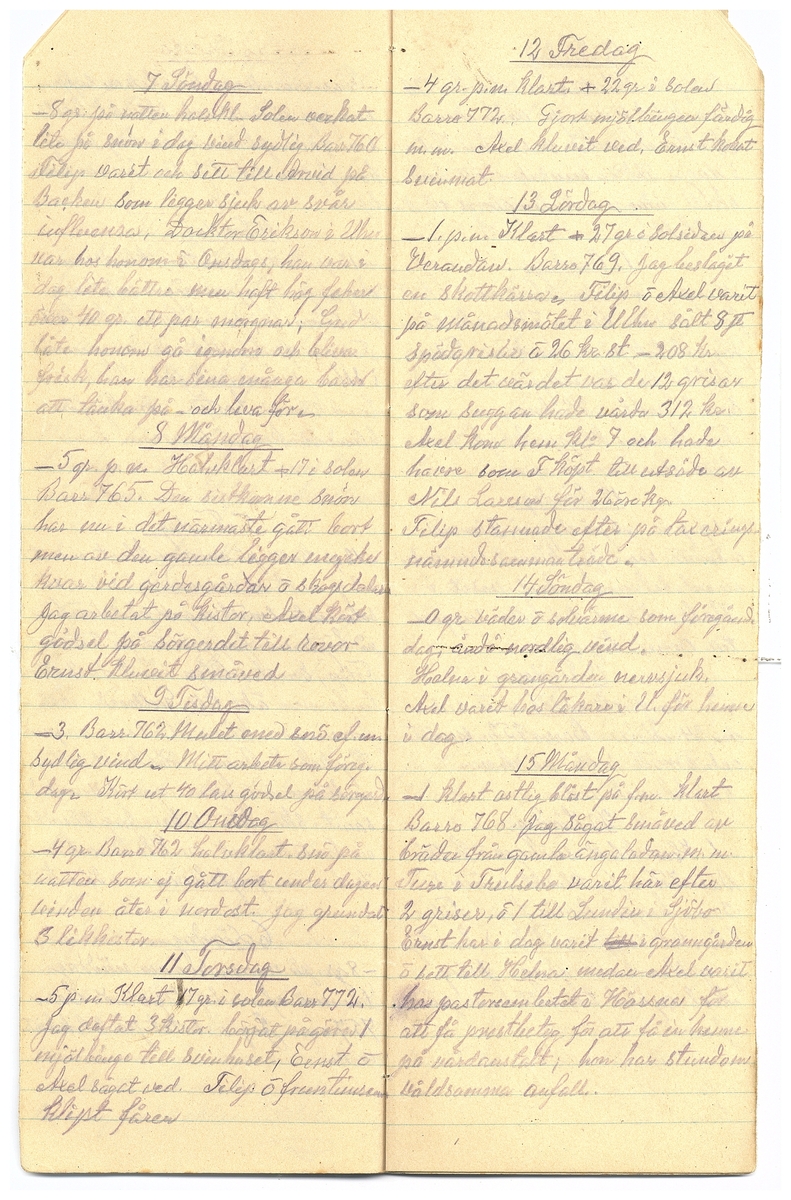 7 Söndag
-8 gr. på natten halvkl. Solen verkat
lite på snön i dag vind sydlig Barr 760
Filip varit och sett till Arvid på
Backen som ligger sjuk av svår
influensa, Docktor Erikson i Uhu
var hos honom i Onsdags, han var i
dag lite bättre men haft hög feber
över 40 gr. ett par morgnar, Gud
låte honom gå igenom och bliva
frisk, han har sina många barn
att tänka på - och leva för.
8 Måndag
-5 gr. p.m. Halvklart +17 i solen
Barr 765. Den sistkomne snön
har nu i det närmaste gått bort
men av den gamle ligger mycke
kvar vid gerdesgårdar ö skogsdalar
Jag arbetat på kistor, Axel kört
gödsel på Sörgerdet till rovor
Ernst kluvit småved
9 Tisdag
-3. Barr 762 Mulet med snö ef.m.
sydlig vind. Mitt arbete som föreg.
dag. Kört ut 40 lass gödsel på sörgerd
10 Onsdag
-4 gr Barro 762 halvklart. snö på
natten som ej gått bort under dagen
vinden åter i nordost. Jag grundat
3 likkistor.
11 Torsdag
-5 p.m Klart 17 gr. i solen Barr 772.
Jag 3 kistor. börjat på göra 1
mjölbinge till svinhuset, Ernst ö
Axel sågat ved. Filip ö fruntimren
klipt fåren
12 Fredag
-4 gr. p.m. klart. + 22 gr i solen
Barro 772. Gjort mjölbingen färdig
m.m. Axel kluvit ved, Ernst kokat
Svinmat.
13 Lördag
-1. p.m. Klart + 27 gr i Solsidan på
Verandan. Barro 769. Jag beslagit
en skottkärra. Filip ö Axel varit
på månadsmötet i Uhu sålt 8 st
spädgrisar à 26 kr. st - 208 Kr.
efter det värdet var de 12 grisar
som suggan hade värda 312 kr.
Axel kom hem kl. 7 och hade
havre som F köpt till utsäde av
Nils Larsson för 26 öre kg.
Filip stannade efter på taxerings-
nämndsammanträde.
14 Söndag
-0 gr väder ö solvärme som föregånd.
dag, ändå nordlig vind.
Helna i grangården nervsjuk.
Axel varit hos läkare i U. för henne
i dag.
15 Måndag
-1 klart ostlig blåst på f.m. klart
Barro 768. Jag Sågat småved av
bräder från gamla ängaladan m.m.
Ture i Truelsebo varit här efter
2 griser, ö 1 till Lundin i Sjöbo
Ernst har i dag varit i granngården
ö sett till Helna medan Axel varit
hos pastorsembetet i Hössna för
att få prestbetyg för att få in henne
på vårdanstalt, hon har stundom
våldsamma anfall.